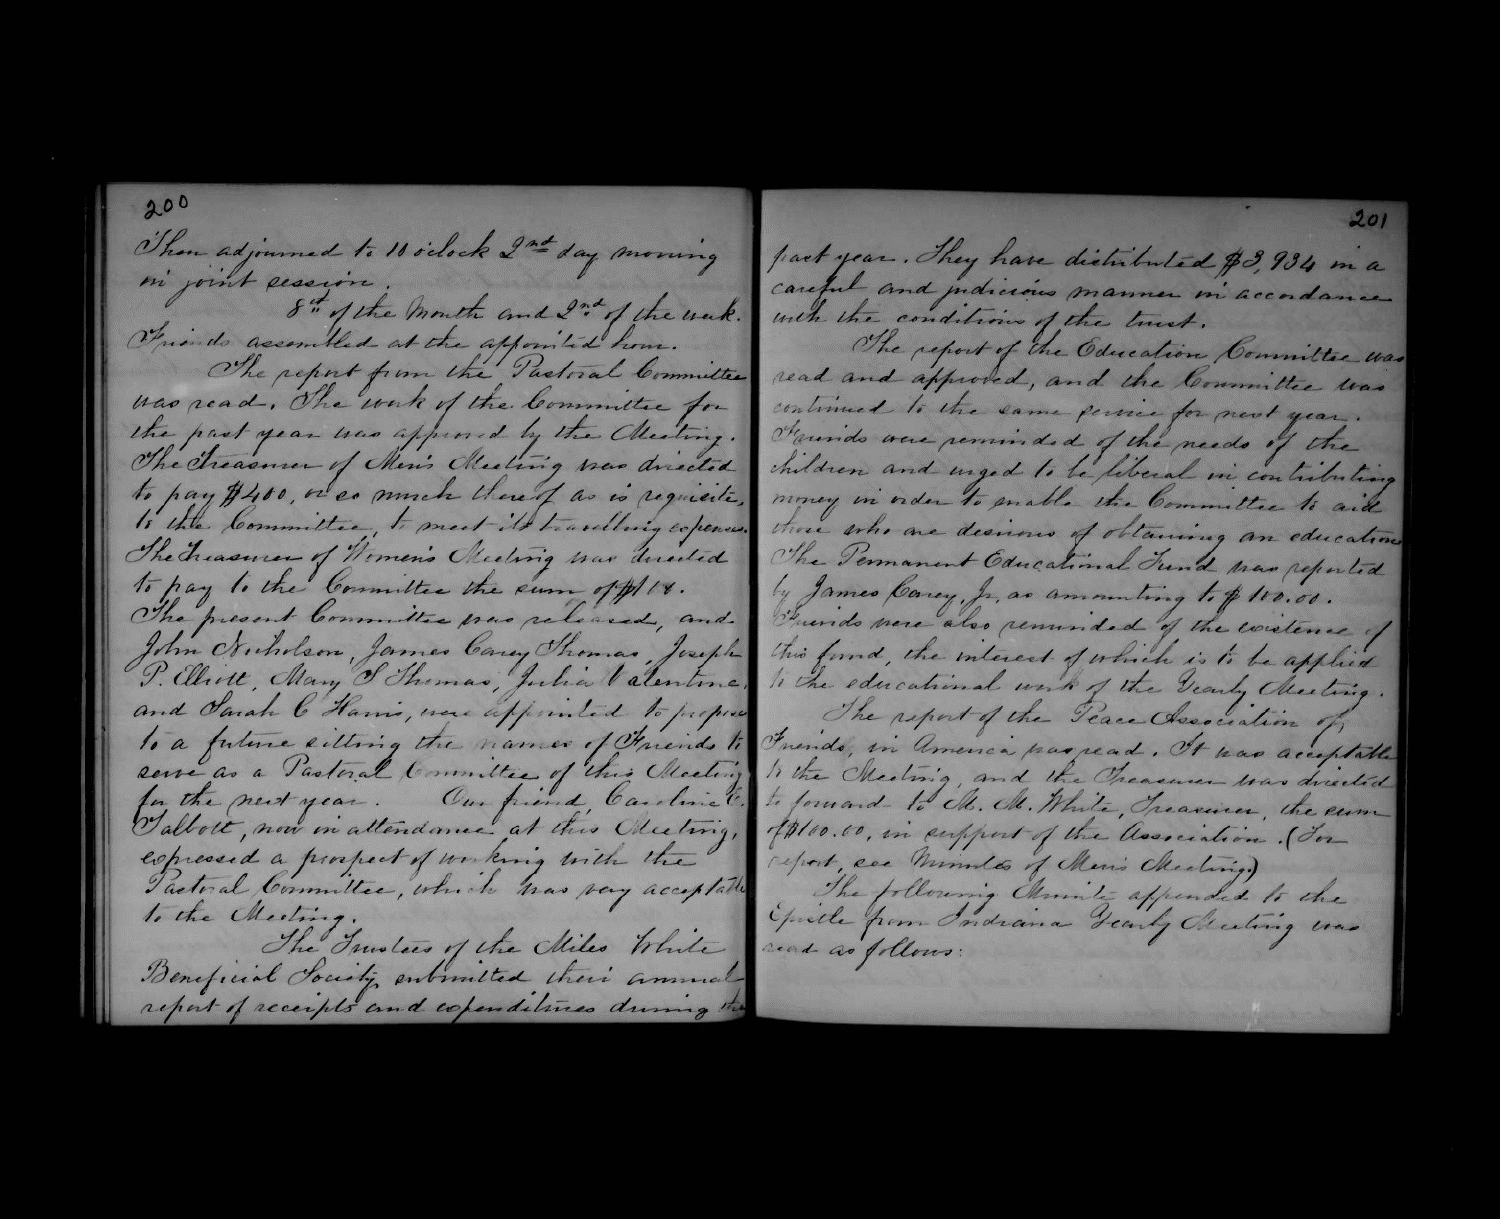 200
Then adjourned to 10 o'clock 2nd day morning
in joint session.
8th of the Month and 2nd of the week.
Friends assembled at the appointed hour.
The report from the Pastoral Committee
was read. The work of the Committee for
the past year was approved by the Meeting.
The Treasurer of Men's Meeting was directed
to pay $400, or so much thereof as is requisite,
to the Committee, to meet its travelling expenses.
The Treasurer of Women's Meeting was directed
to pay to the Committee the sum of
The present Committee was released, and
John Nicholson, James Carey Thomas, Joseph
P. Elliott, Mary S Thomas, Julia Valentine,
and Sarah C Harris, were appointed to propose
to a future sitting the names of Friends to
serve as a Pastoral Committee of this Meeting
for the next year. Our friend, Caroline E.
Talbott, now in attendance at this Meeting,
expressed a prospect of working with the
Pastoral Committee, which was very acceptable
to the Meeting.
The Trustees of the Miles White
Beneficial Society submitted their annual
report of receipts and expenditures during the
201
past year. They have distributed $3,934 in a
careful and judicious manner in accordance
with the conditions of the trust.
The report of the Education Committee was
read and approved, and the Committee was
continued to the same service for next year.
Friends were reminded of the needs of the
children and urged to be liberal in contributing
money in order to enable the Committee to aid
those who are desirous of obtaining an education
The Permanent Educational Fund was reported
by James Carey, Jr, as amounting to $100.00.
Friends were also reminded of the existence of
this fund, the interest of which is to be applied
to the educational work of the Yearly Meeting.
The report of the Peace Association of
Friends, in America was read. It was acceptable
to the Meeting, and the Treasurer was directed
to forward to M. M. White, Treasurer, the sum
of $100.00, in support of the Association. (For
report, see Minutes of Men's Meeting.)
The following Minute appended to the
Epistle from Indiana Yearly Meeting was
read as follows: